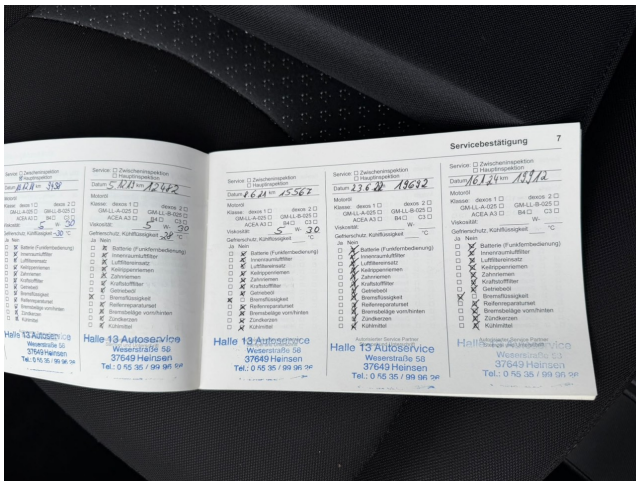 Servicebestätigung 7
Service: Zwischeninspektion
Hauptinspektion
Datum km
Motoröl
Klasse: dexos 1 dexos 2
GM-LL-A-025 GM-LL-B-025
ACEA A3 B4 C3
Viskosität: 5 W- 30
Gefrierschutz, Kühlflüssigkeit °C
Ja Nein
Batterie (Funkfernbedienung)
Innenraumluftfilter
Luftfiltereinsatz
Keilrippenriemen
Zahnriemen
Kraftstofffilter
Getriebeöl
Bremsflüssigkeit
Reifenreparaturset
Bremsbeläge
Zündkerzen
Kühlmittel
Halle 13 Autoservice
Weserstraße 58
37649 Heinsen
Tel.: 0 55 35 / 99 96
Service: Zwischeninspektion
Hauptinspektion
Datum 5. km 12482
Motoröl
Klasse: dexos 1 dexos 2
GM-LL-A-025 GM-LL-B-025
ACEA A3 B4 C3
Viskosität: 5 W- 30
Gefrierschutz, Kühlflüssigkeit -38 °C
Ja Nein
Batterie (Funkfernbedienung)
Innenraumluftfilter
Luftfiltereinsatz
Keilrippenriemen
Zahnriemen
Kraftstofffilter
Getriebeöl
Bremsflüssigkeit
Reifenreparaturset
Bremsbeläge vorn/hinten
Zündkerzen
Kühlmittel
Halle 13 Autoservice
Weserstraße 58
37649 Heinsen
Tel.: 0 55 35 / 99 96
Service: Zwischeninspektion
Hauptinspektion
Datum km 15567
Motoröl
Klasse: dexos 1 dexos 2
GM-LL-A-025 GM-LL-B-025
ACEA A3 B4 C3
Viskosität: 5 W- 30
Gefrierschutz, Kühlflüssigkeit °C
Ja Nein
Batterie (Funkfernbedienung)
Innenraumluftfilter
Luftfiltereinsatz
Keilrippenriemen
Zahnriemen
Kraftstofffilter
Getriebeöl
Bremsflüssigkeit
Reifenreparaturset
Bremsbeläge vorn/hinten
Zündkerzen
Kühlmittel
Halle 13 Autoservice
Weserstraße 58
37649 Heinsen
Tel.: 0 55 35 / 99 96
Service: Zwischeninspektion
Hauptinspektion
Datum 23.6.22 km 19692
Motoröl
Klasse: dexos 1 dexos 2
GM-LL-A-025 GM-LL-B-025
ACEA A3 B4 C3
Viskosität: W-
Gefrierschutz, Kühlflüssigkeit °C
Ja Nein
Batterie (Funkfernbedienung)
Innenraumluftfilter
Luftfiltereinsatz
Keilrippenriemen
Zahnriemen
Kraftstofffilter
Getriebeöl
Bremsflüssigkeit
Reifenreparaturset
Bremsbeläge vorn/hinten
Zündkerzen
Kühlmittel
Halle 13 Autoservice
Weserstraße 58
37649 Heinsen
Tel.: 0 55 35 / 99 96
Service: Zwischeninspektion
Hauptinspektion
Datum km 19912
Motoröl
Klasse: dexos 1 dexos 2
GM-LL-A-025 GM-LL-B-025
ACEA A3 B4 C3
Viskosität: W-
Gefrierschutz, Kühlflüssigkeit °C
Ja Nein
Batterie (Funkfernbedienung)
Innenraumluftfilter
Luftfiltereinsatz
Keilrippenriemen
Zahnriemen
Kraftstofffilter
Getriebeöl
Bremsflüssigkeit
Reifenreparaturset
Bremsbeläge vorn/hinten
Zündkerzen
Kühlmittel
Weserstraße 58
37649 Heinsen
Tel.: 0 55 35 / 99 96